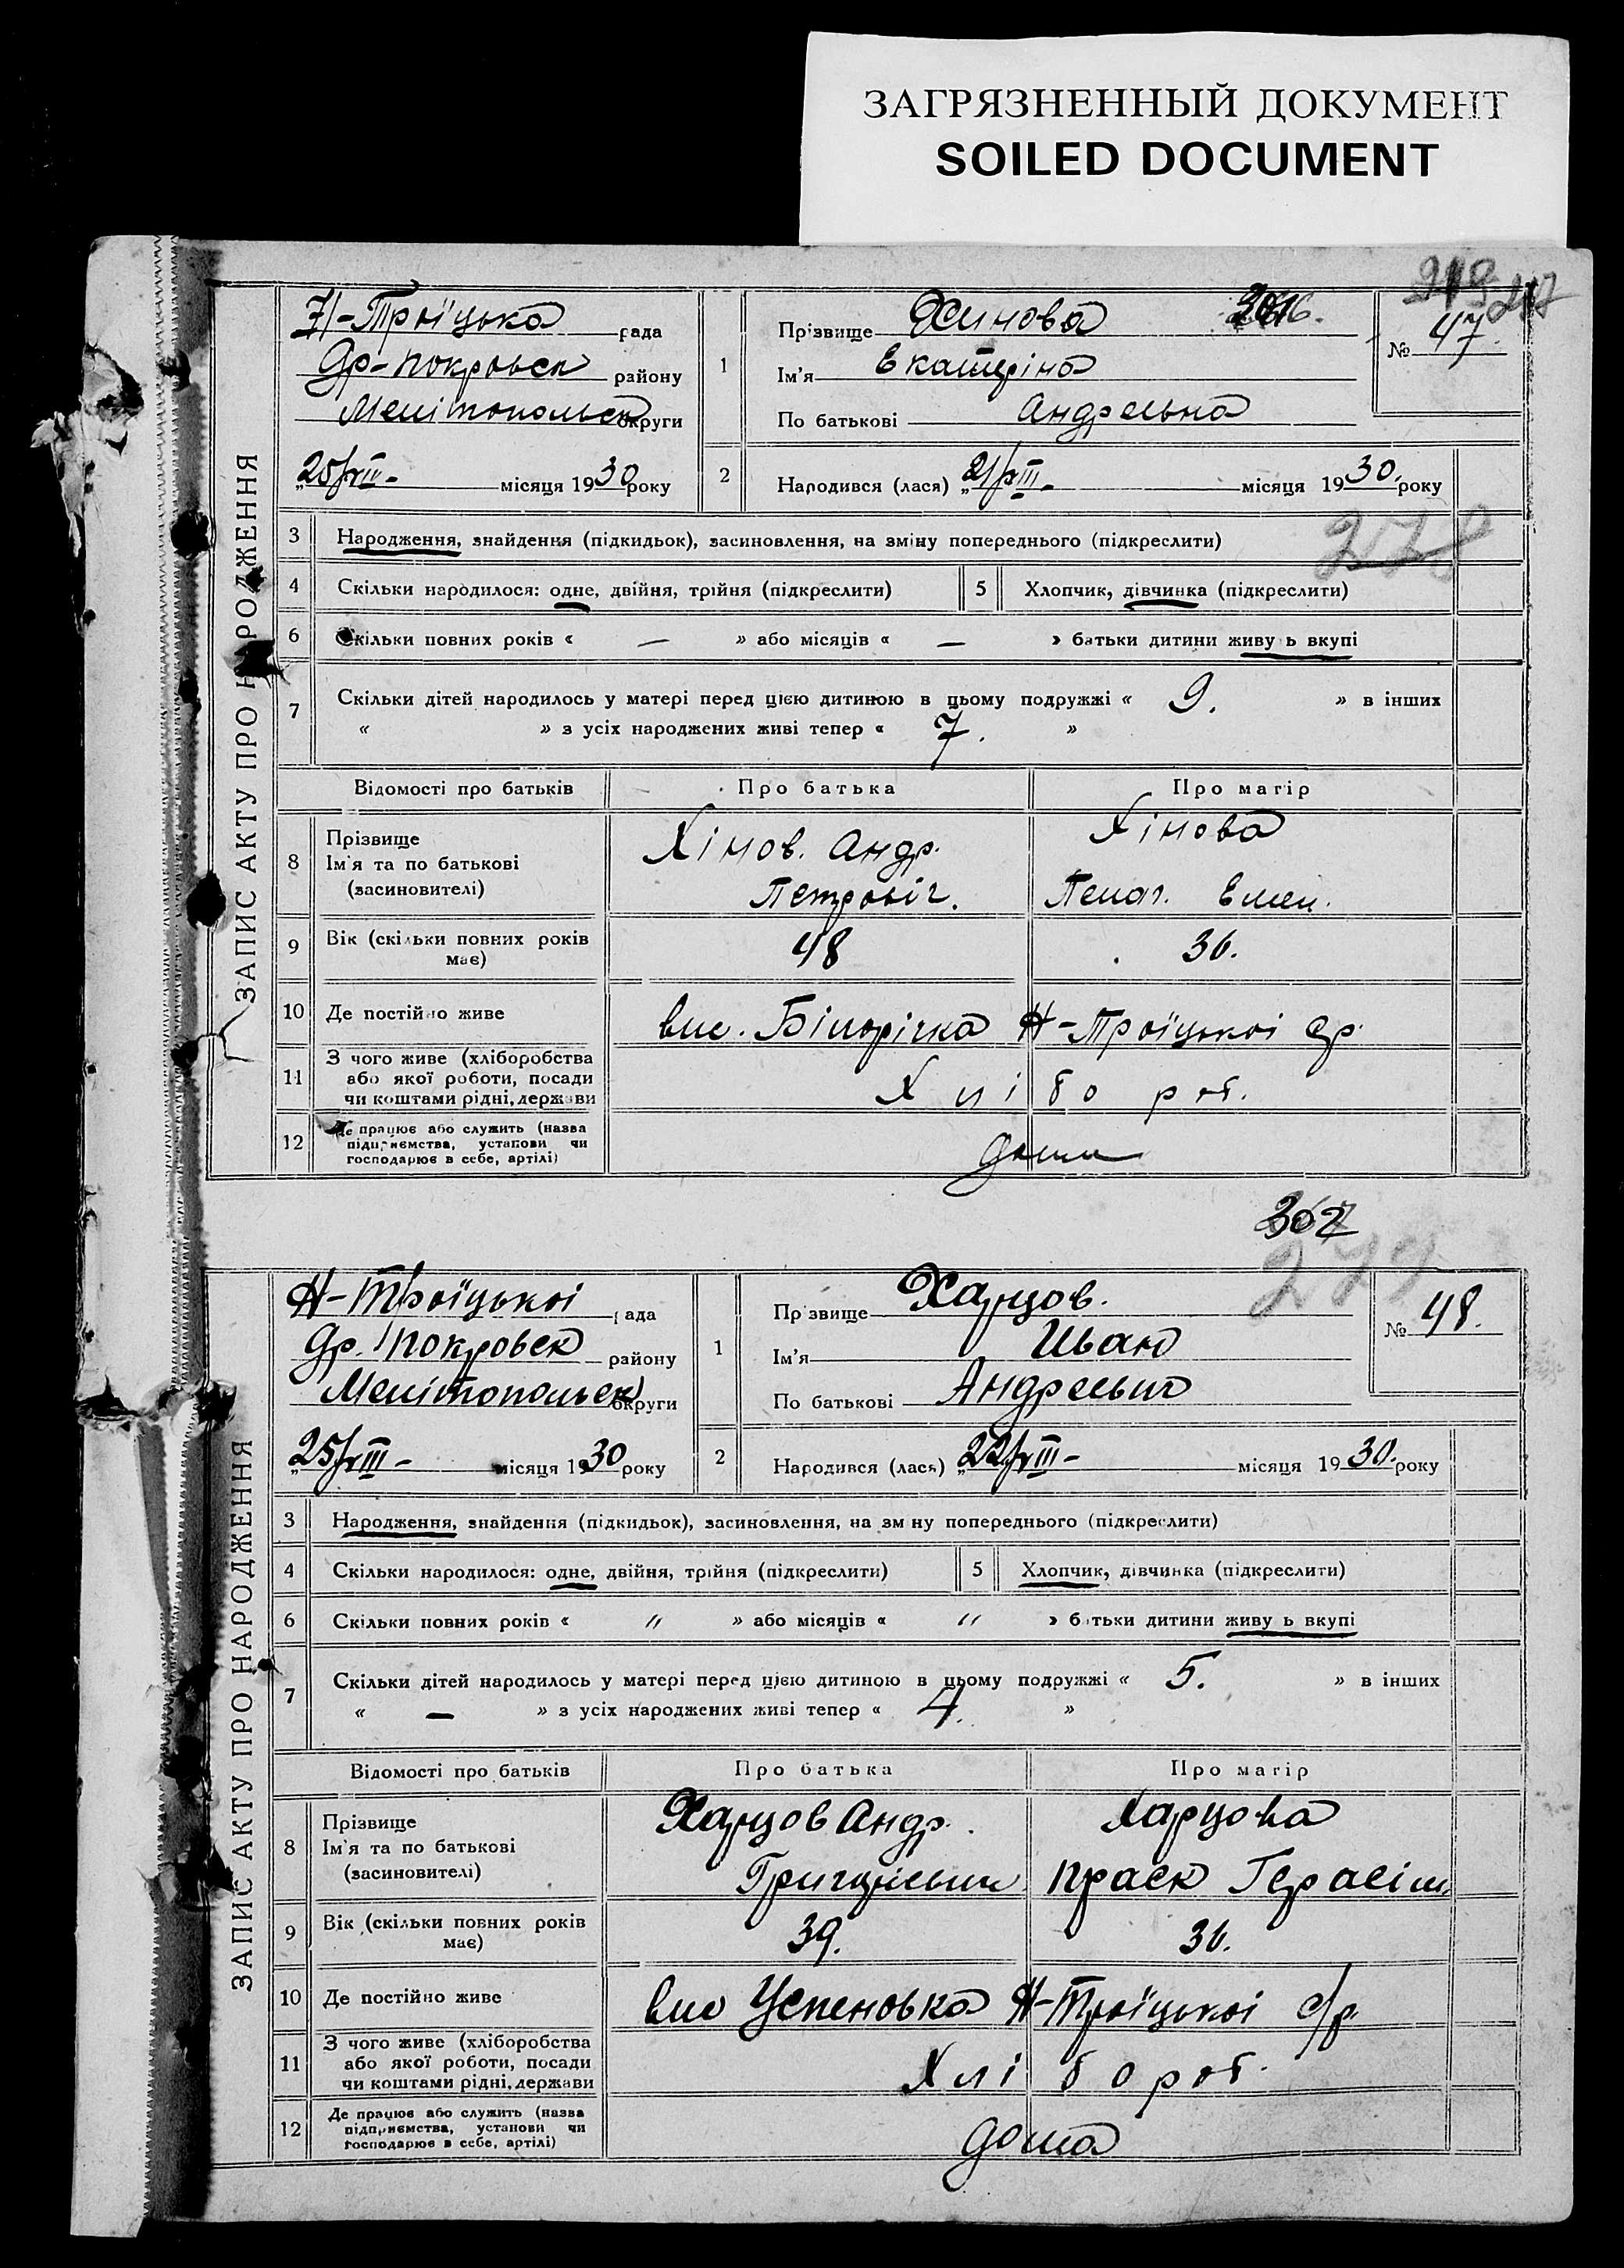 ЗАГРЯЗНЕННЫЙ ДОКУМЕНТ
SOILED DOCUMENT
ЗАПИС АКТУ ПРО НАРОДЖЕННЯ
Н-Троїцька рада
Др-покровск району
Мелітопольск округи
„25/VIII- місяця 1930 року
1
Прізвище Химова
Ім'я Екатеріна
По батькові Андреевна
№ 47.
2
Народився (лася) „21/VIII- місяця 1930. року
278
3 Народження, знайдення (підкидьок), засиновлення, на зміну попереднього (підкреслити)
4 Скільки народилося: одне, двійня, трійня (підкреслити) 5 Хлопчик, дівчинка (підкреслити)
6 Скільки повних років « — » або місяців « — » батьки дитини живу ь вкупі
7 Скільки дітей народилось у матері перед цією дитиною в цьому подружжі « 9. » в інших
« » з усіх народжених живі тепер « 7. »
Відомості про батьків Про батька Про матір
8 Прізвище
Ім'я та по батькові
(засиновителі)
Хімов. Андр.
Петровіч.
Хімова
Пелаг. Емел.
9 Вік (скільки повних років має) 48 36.
10 Де постійно живе вис. Білорічка Н-Троїцькоі с/р
11 З чого живе (хліборобства
або якої роботи, посади
чи коштами рідні, держави
Хлібо роб.
12 Де працює або служить (назва
підприємства, установи чи
господарює в себе, артілі)
дома
302
279
ЗАПИС АКТУ ПРО НАРОДЖЕННЯ
Н-Троїцькоі рада
Др. покровск району
Мелітопольск округи
„25/VIII- місяця 1930 року
1
Пр звище Харцов.
Ім'я Иван
По батькові Андреевич
№ 48.
2
Народився (лася) „22/VIII- місяця 1930. року
3 Народження, знайдення (підкидьок), засиновлення, на зм ну попереднього (підкреслити)
4 Скільки народилося: одне, двійня, трійня (підкреслити) 5 Хлопчик, дівчинка (підкреслити)
6 Скільки повних років « " » або місяців « " » батьки дитини живу ь вкупі
7 Скільки дітей народилось у матері перед цією дитиною в цьому подружжі « 5. » в інших
« — » з усіх народжених живі тепер « 4. »
Відомості про батьків Про батька Про матір
8 Прізвище
Ім'я та по батькові
(засиновителі)
Харцов Андр.
Григорієвич
Харцова
Праск Герасім.
9 Вік (скільки повних років має) 39. 36.
10 Де постійно живе вис Успеновка Н-Троїцькоі с/р
11 З чого живе (хліборобства
або якої роботи, посади
чи коштами рідні, держави
Хлі бороб.
12 Де працює або служить (назва
підприємства, установи чи
господарює в себе, артілі)
дома